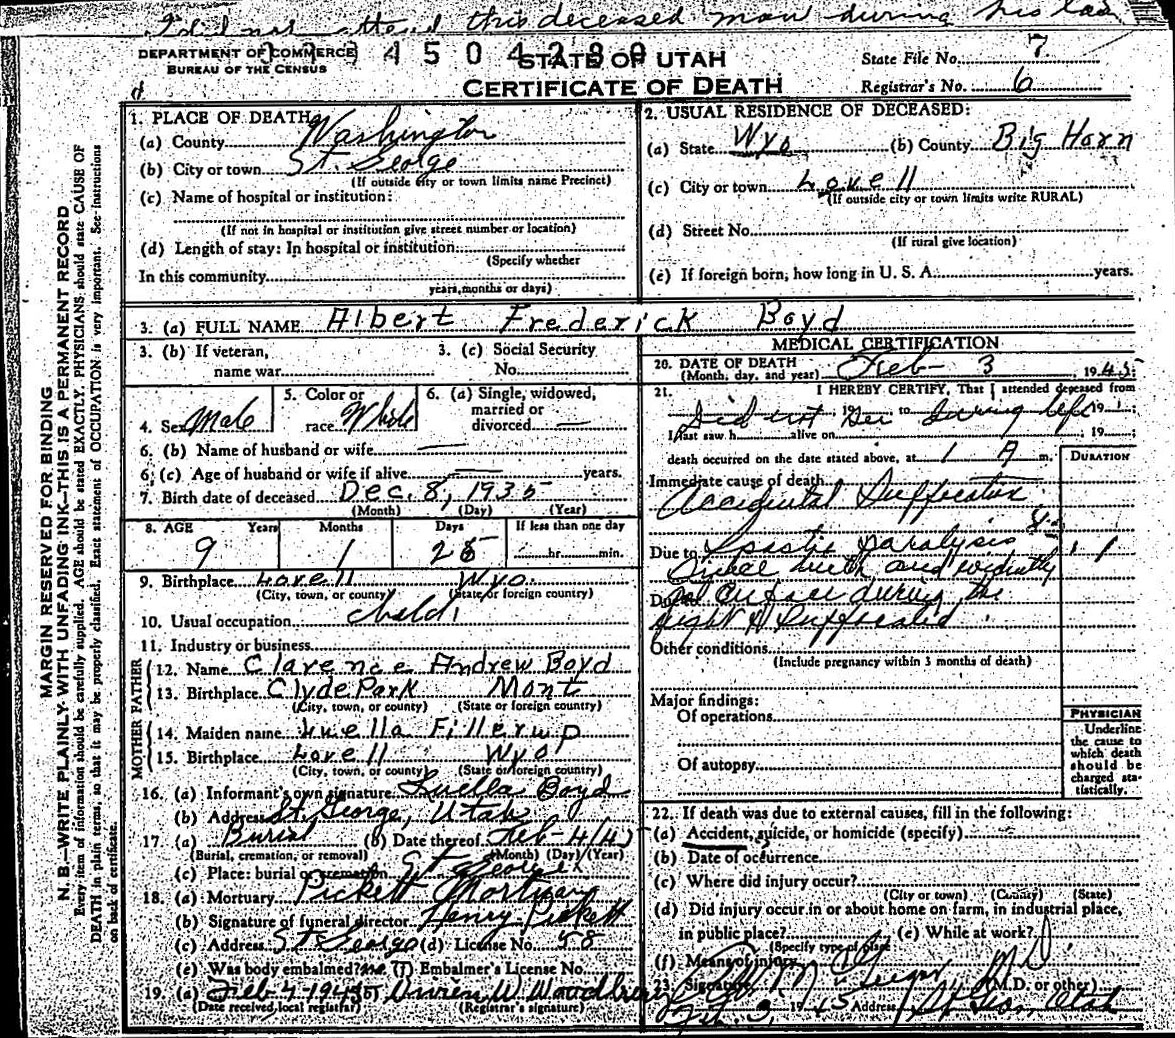 I did not attend this deceased man during his las
DEPARTMENT OF COMMERCE
BUREAU OF THE CENSUS
4 5 0 4 2 8 0
STATE OF UTAH
CERTIFICATE OF DEATH
State File No. 7
Registrar's No. 6
MARGIN RESERVED FOR BINDING
N. B.—WRITE PLAINLY WITH UNFADING INK—THIS IS A PERMANENT RECORD
Every item of information should be carefully supplied. AGE should be stated EXACTLY. PHYSICIANS should state CAUSE OF
DEATH in plain terms, so that it may be properly classified. Exact statement of OCCUPATION is very important. See instructions
on back of certificate.
1. PLACE OF DEATH
(a) County Washington
(b) City or town St George
(If outside city or town limits name Precinct)
(c) Name of hospital or institution:
(If not in hospital or institution give street number or location)
(d) Length of stay: In hospital or institution
(Specify whether
In this community
years, months or days)
2. USUAL RESIDENCE OF DECEASED:
(a) State Wyo (b) County Big Horn
(c) City or town Lovell
(If outside city or town limits write RURAL)
(d) Street No.
(If rural give location)
(e) If foreign born, how long in U. S. A. years.
3. (a) FULL NAME Albert Frederick Boyd
3. (b) If veteran,
name war
3. (c) Social Security
No.
4. Sex Male
5. Color or
race White
6. (a) Single, widowed,
married or
divorced
6. (b) Name of husband or wife
6. (c) Age of husband or wife if alive years.
7. Birth date of deceased Dec. 8, 1935
(Month) (Day) (Year)
8. AGE Years Months Days If less than one day
9 1 25 hr. min.
9. Birthplace Lovell Wyo.
(City, town, or county) (State or foreign country)
10. Usual occupation child
11. Industry or business
FATHER
12. Name Clarence Andrew Boyd
13. Birthplace Clyde Park Mont
(City, town, or county) (State or foreign country)
MOTHER
14. Maiden name Luella Fillerup
15. Birthplace Lovell Wyo
(City, town, or county) (State or foreign country)
16. (a) Informant's own signature Luella Boyd
(b) Address St. George, Utah
17. (a) Burial (b) Date thereof Feb-4/45
(Burial, cremation, or removal) (Month) (Day) (Year)
(c) Place: burial or cremation St George
18. (a) Mortuary Pickett Mortuary
(b) Signature of funeral director Henry Pickett
(c) Address St George (d) License No. 58
(e) Was body embalmed? no (f) Embalmer's License No.
19. (a) Feb 4-1945 Owen W Woodbury
(Date received local registrar) (Registrar's signature)
MEDICAL CERTIFICATION
20. DATE OF DEATH
(Month, day, and year) Feb- 3, 1945
21. I HEREBY CERTIFY, That I attended deceased from
Did not See 19 to during life 19
I last saw h alive on 19
death occurred on the date stated above, at 1 A m.
DURATION
Immediate cause of death
Accidental Suffocation
Due to Spastic paralysis
Since birth and evidently
Due to on face during the
night & Suffocated
Other conditions
(Include pregnancy within 3 months of death)
Major findings:
Of operations
Of autopsy
PHYSICIAN
Underline
the cause to
which death
should be
charged sta-
tistically.
22. If death was due to external causes, fill in the following:
(a) Accident, suicide, or homicide (specify)
(b) Date of occurrence
(c) Where did injury occur?
(City or town) (County) (State)
(d) Did injury occur in or about home on farm, in industrial place,
in public place? (e) While at work?
(Specify type of place
(f) Means of injury
23. Signature M.D.
(M.D. or other)
Feb. 3, 1945 Address St Geo. Utah